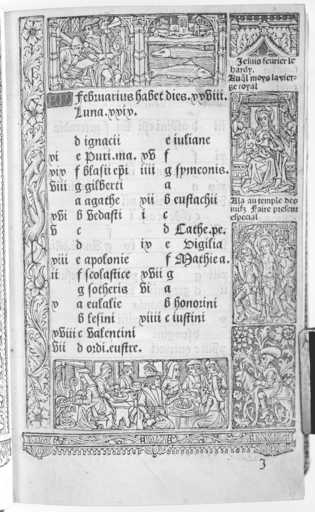 Februarius habet dies. xxviii.
Luna. xxix.
d ignacii
xi e Puri. ma.
xix f blasii epi
viii g gilberti
a agathe
xvi b vedasti
v c
d
xiii e apolonie
ii f scolastice
g sotheris
x a eulalie
b
xviii c valentini
vii d
e iuliane
xv f
iiii g symeonis.
a
xii b eustachii
i c
d Cathe. pe.
ix e Vigilia
f Mathie a.
xvii g
vi a
b honorini
xiiii c iustini
Je suis feurier le
hardy.
la vier-
ge royal
Ala au temple des
iuifz Faire present
especial
3